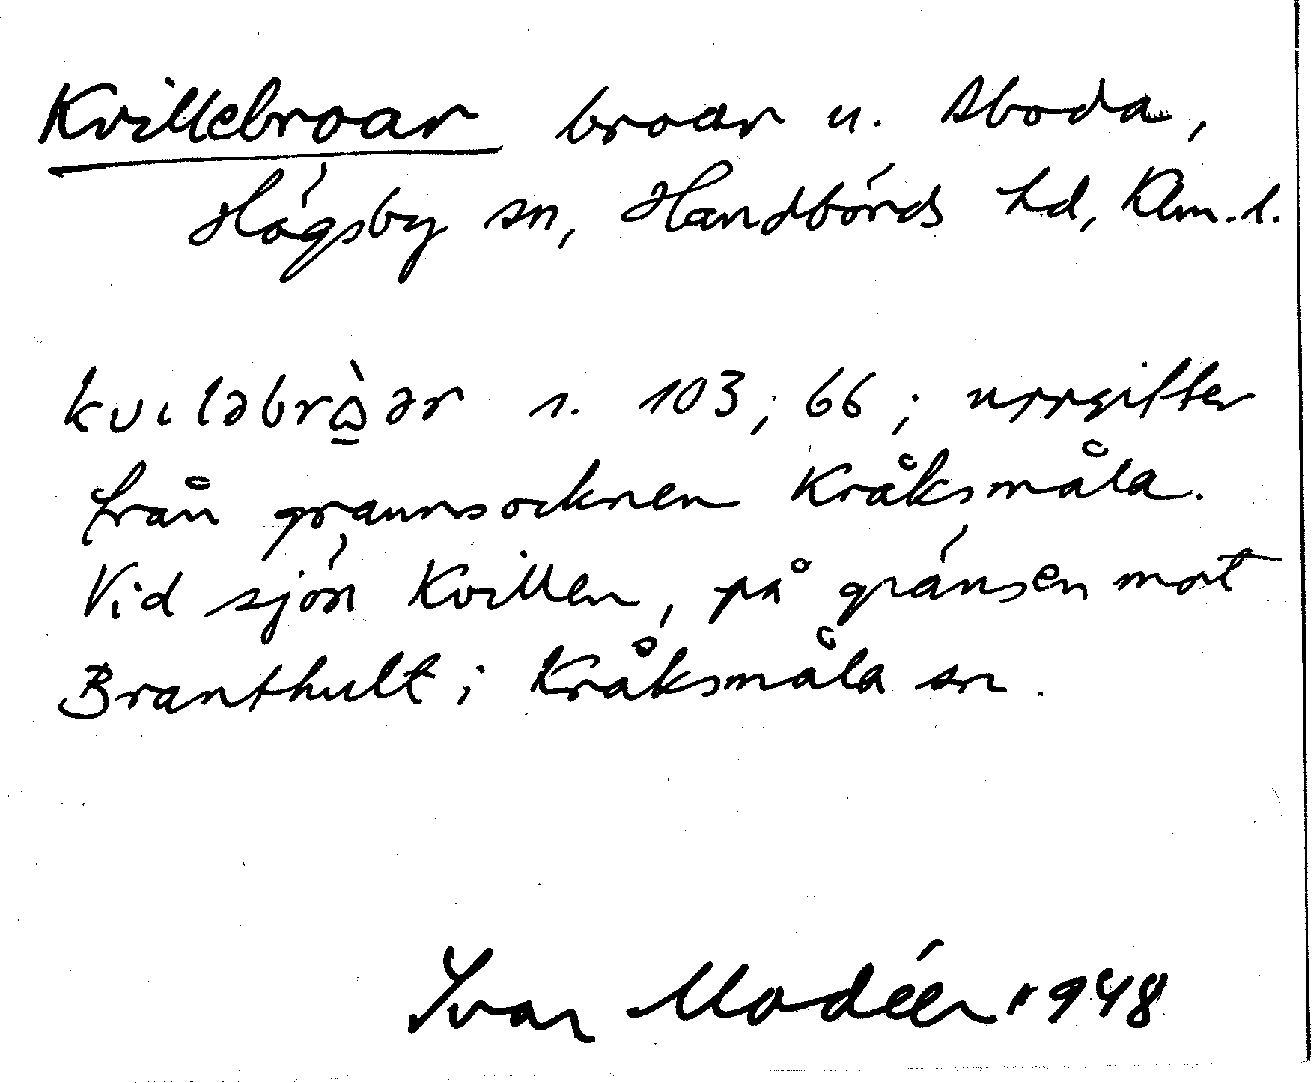 Kvillebroar broar u. Aboda,
Högsby sn, Handbörds hd, Klm. l.
kvıləbrὼ̱ər s. 103; 66; uppgifter
från grannsocknen Kråksmåla.
Vid sjön Kvillen, på gränsen mot
Branthult i Kråksmåla sn.
Ivar Modéer 1948